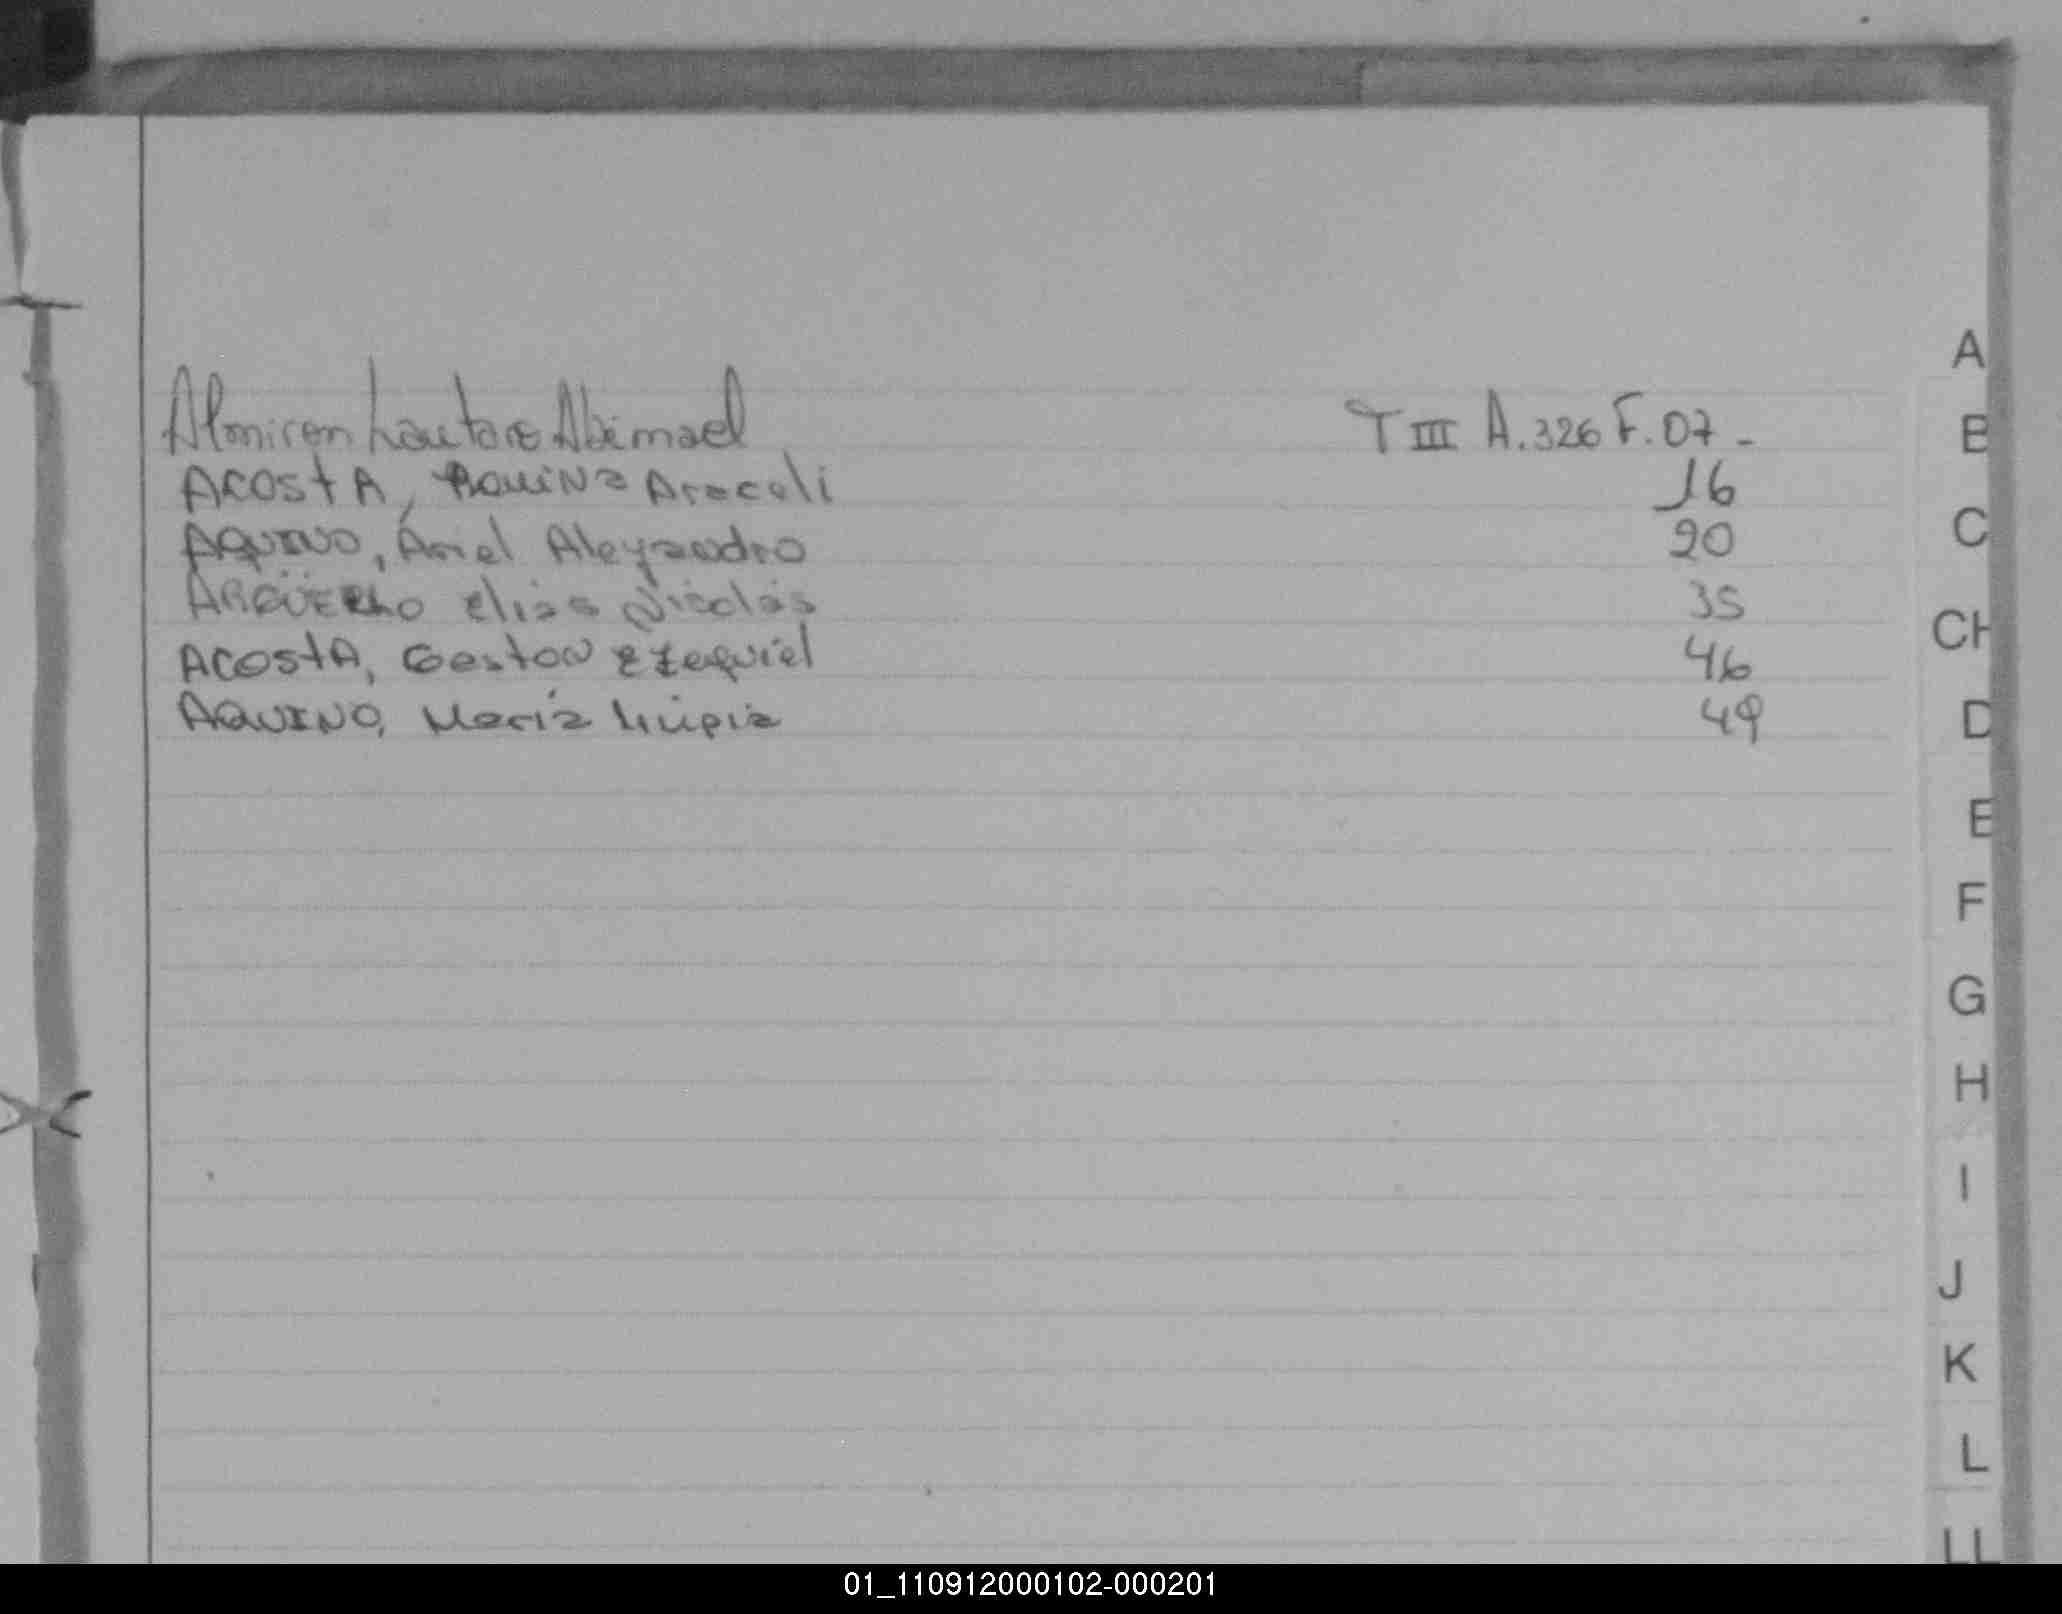 Almiron Lautaro Abimael T III A. 326 F. 07 -
ACOSTA, Araceli 16
AQUINO, Ariel Aleyandro 20
ARGÜELLO Elias Nicolás 35
ACOSTA, Gaston Ezequiel 46
AQUINO, María 49
A
B
C
CH
D
E
F
G
H
I
J
K
L
LL
01_110912000102-000201